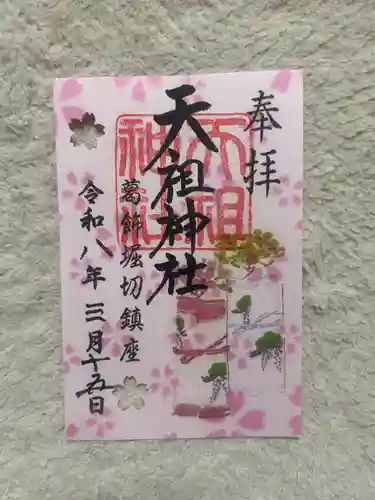 奉拝
天祖神社
葛飾堀切鎮座
令和八年三月十五日
天祖
神社